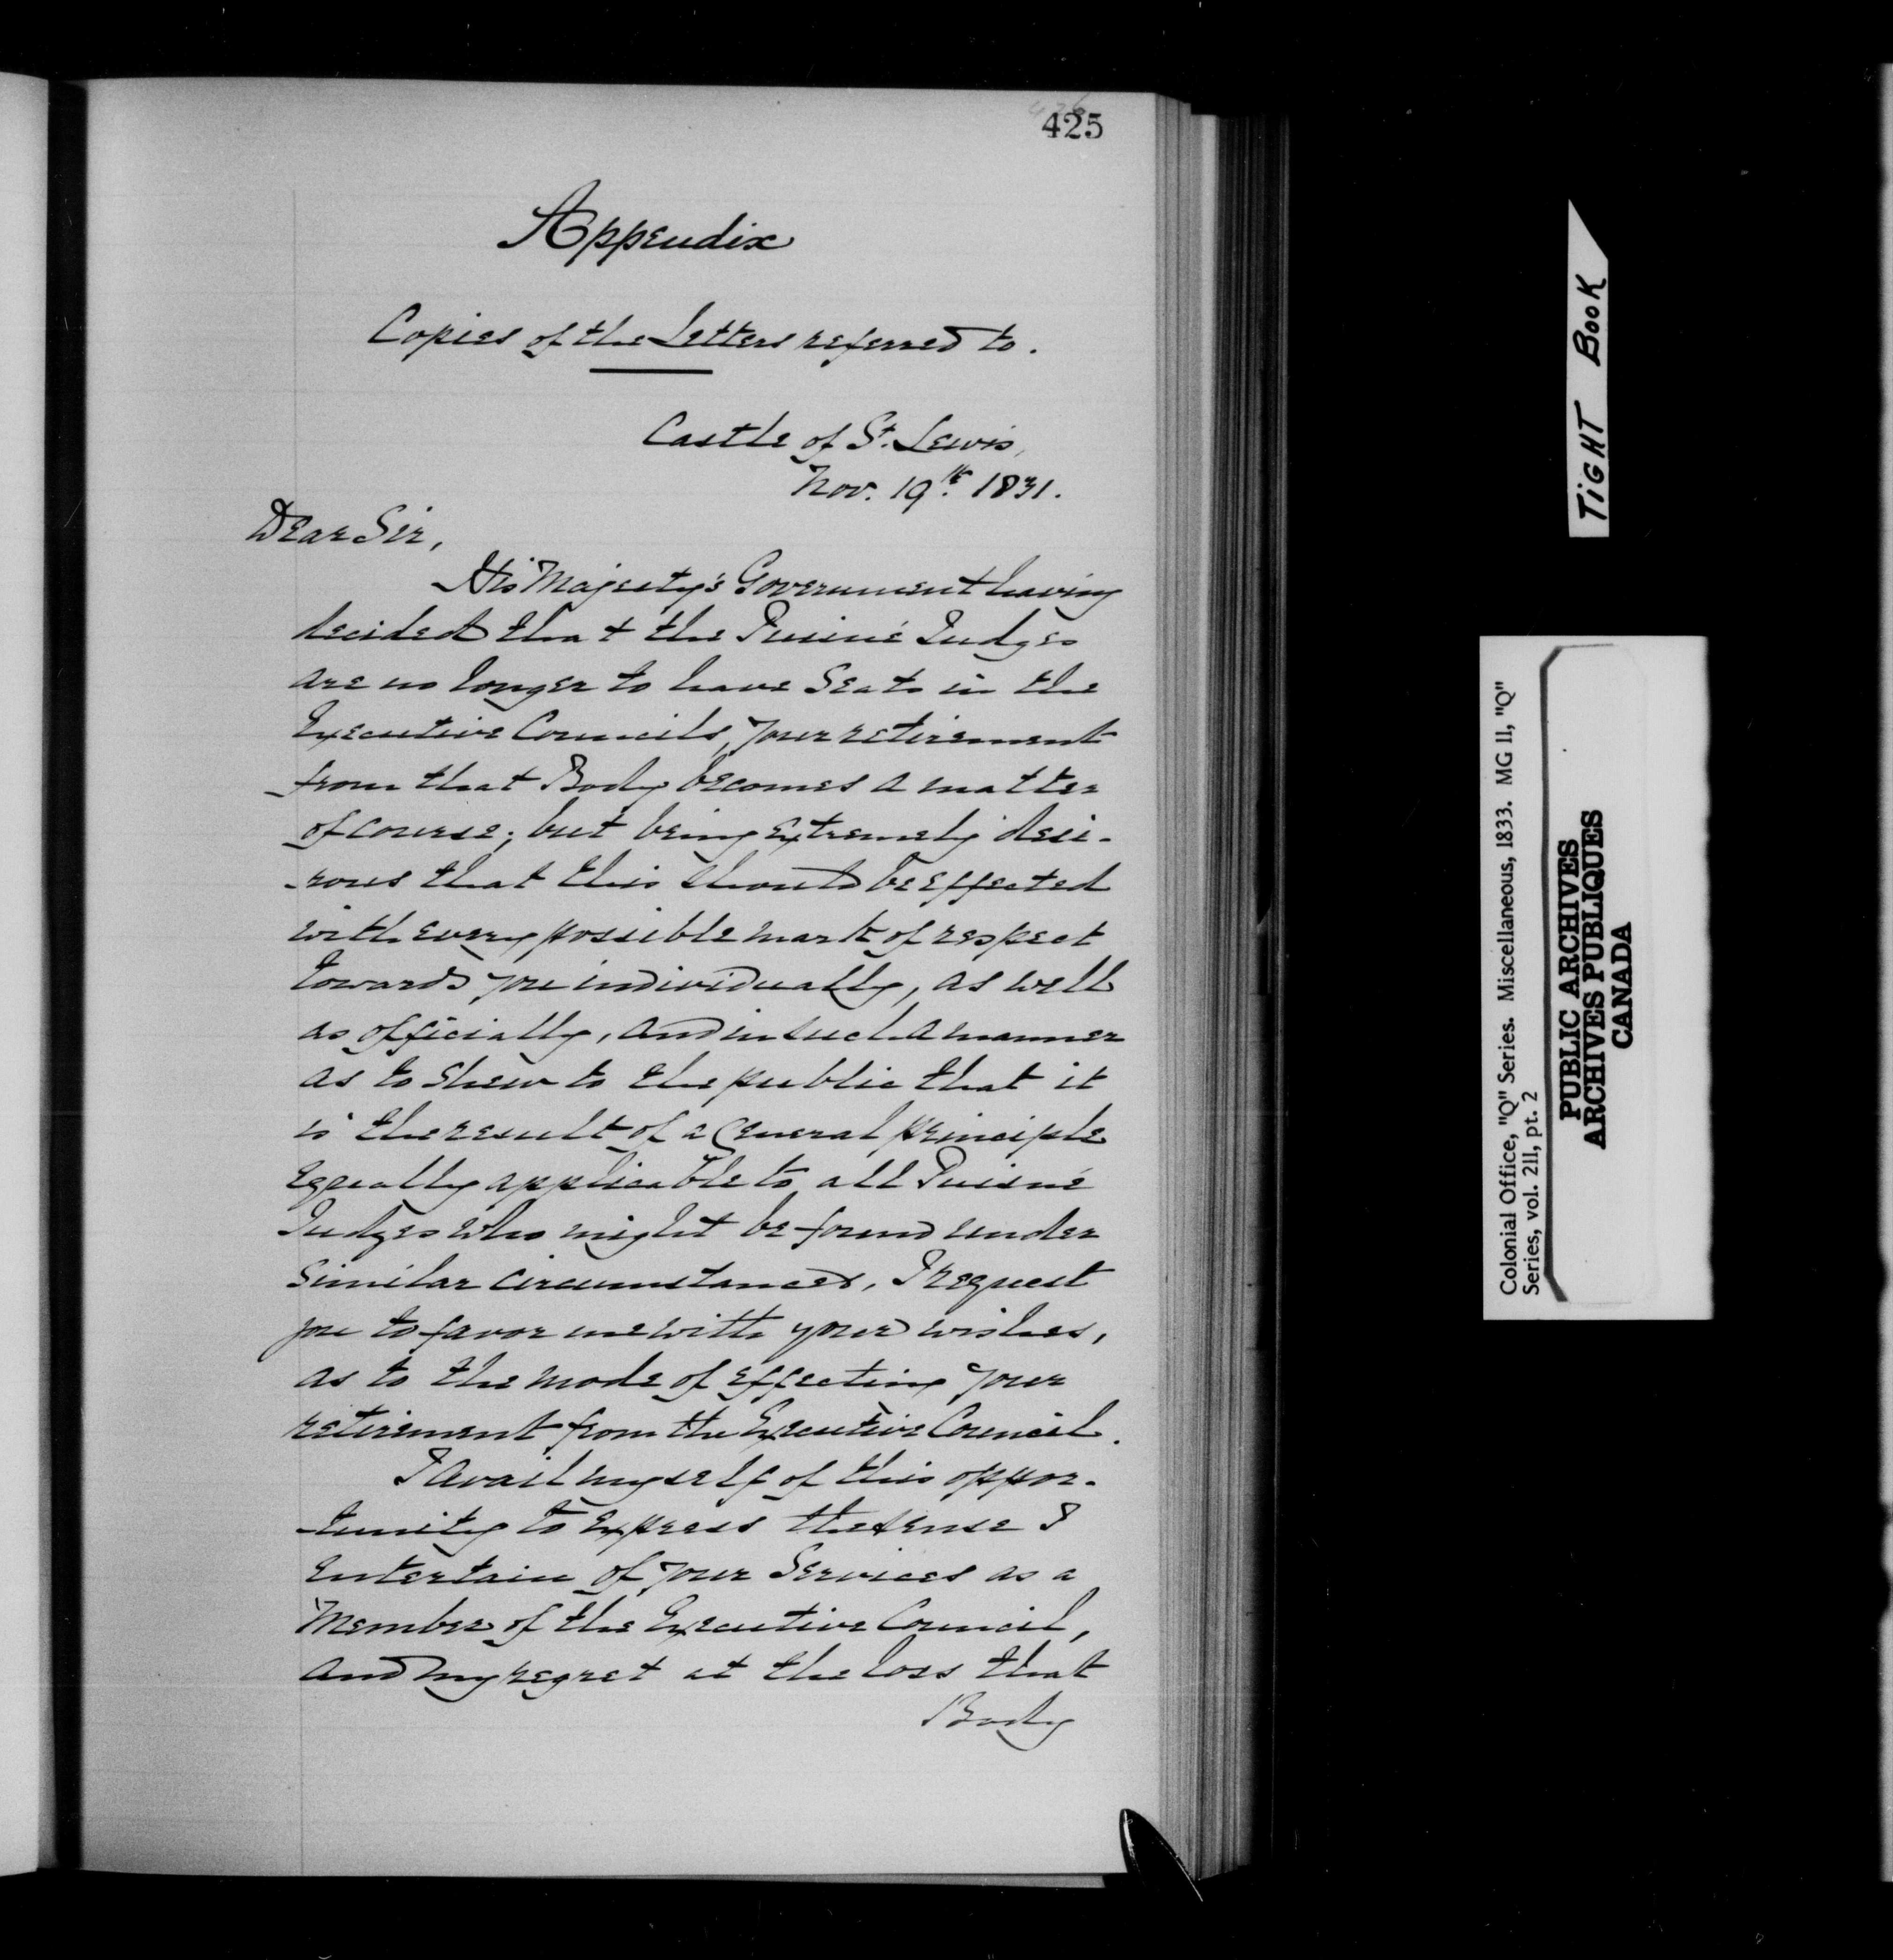 425
Appendix
Copies of the Letters referred to.
Castle of St. Lewis,
Nov. 19th 1831.
Dear Sir,
His Majesty's Government having
decided that the Puisné Judges
are no longer to have Seats in the
Executive Councils, your retirement
from that Body becomes a matter
of course; but being extremely desi-
-rous that this should be effected
with every possible mark of respect
towards you individually, as well
as officially, and in such a manner
as to shew to the public that it
is the result of a General principle
equally applicable to all Puisné
Judges who might be found under
similar circumstances, I request
you to favor me with your wishes,
as to the mode of effecting your
retirement from the Executive Council.
I avail myself of this oppor-
-tunity to express the sense I
entertain of your Services as a
Member of the Executive Council,
and my regret at the loss that
Body
TIGHT BOOK
Colonial Office, "Q" Series. Miscellaneous, 1833. MG 11, "Q"
Series, vol. 211, pt. 2
PUBLIC ARCHIVES
ARCHIVES PUBLIQUES
CANADA